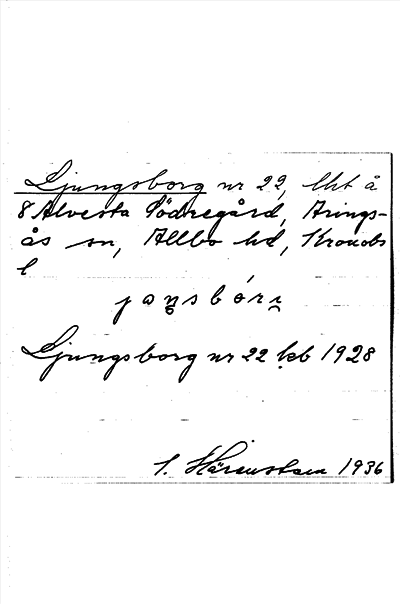 Ljungsborg nr 22, lht å
8 Alvesta Södregård, Arings-
ås sn, Allbo hd, Kronobs
l
jaŋsbóri
Ljungsborg nr 22 kb 1928
1936